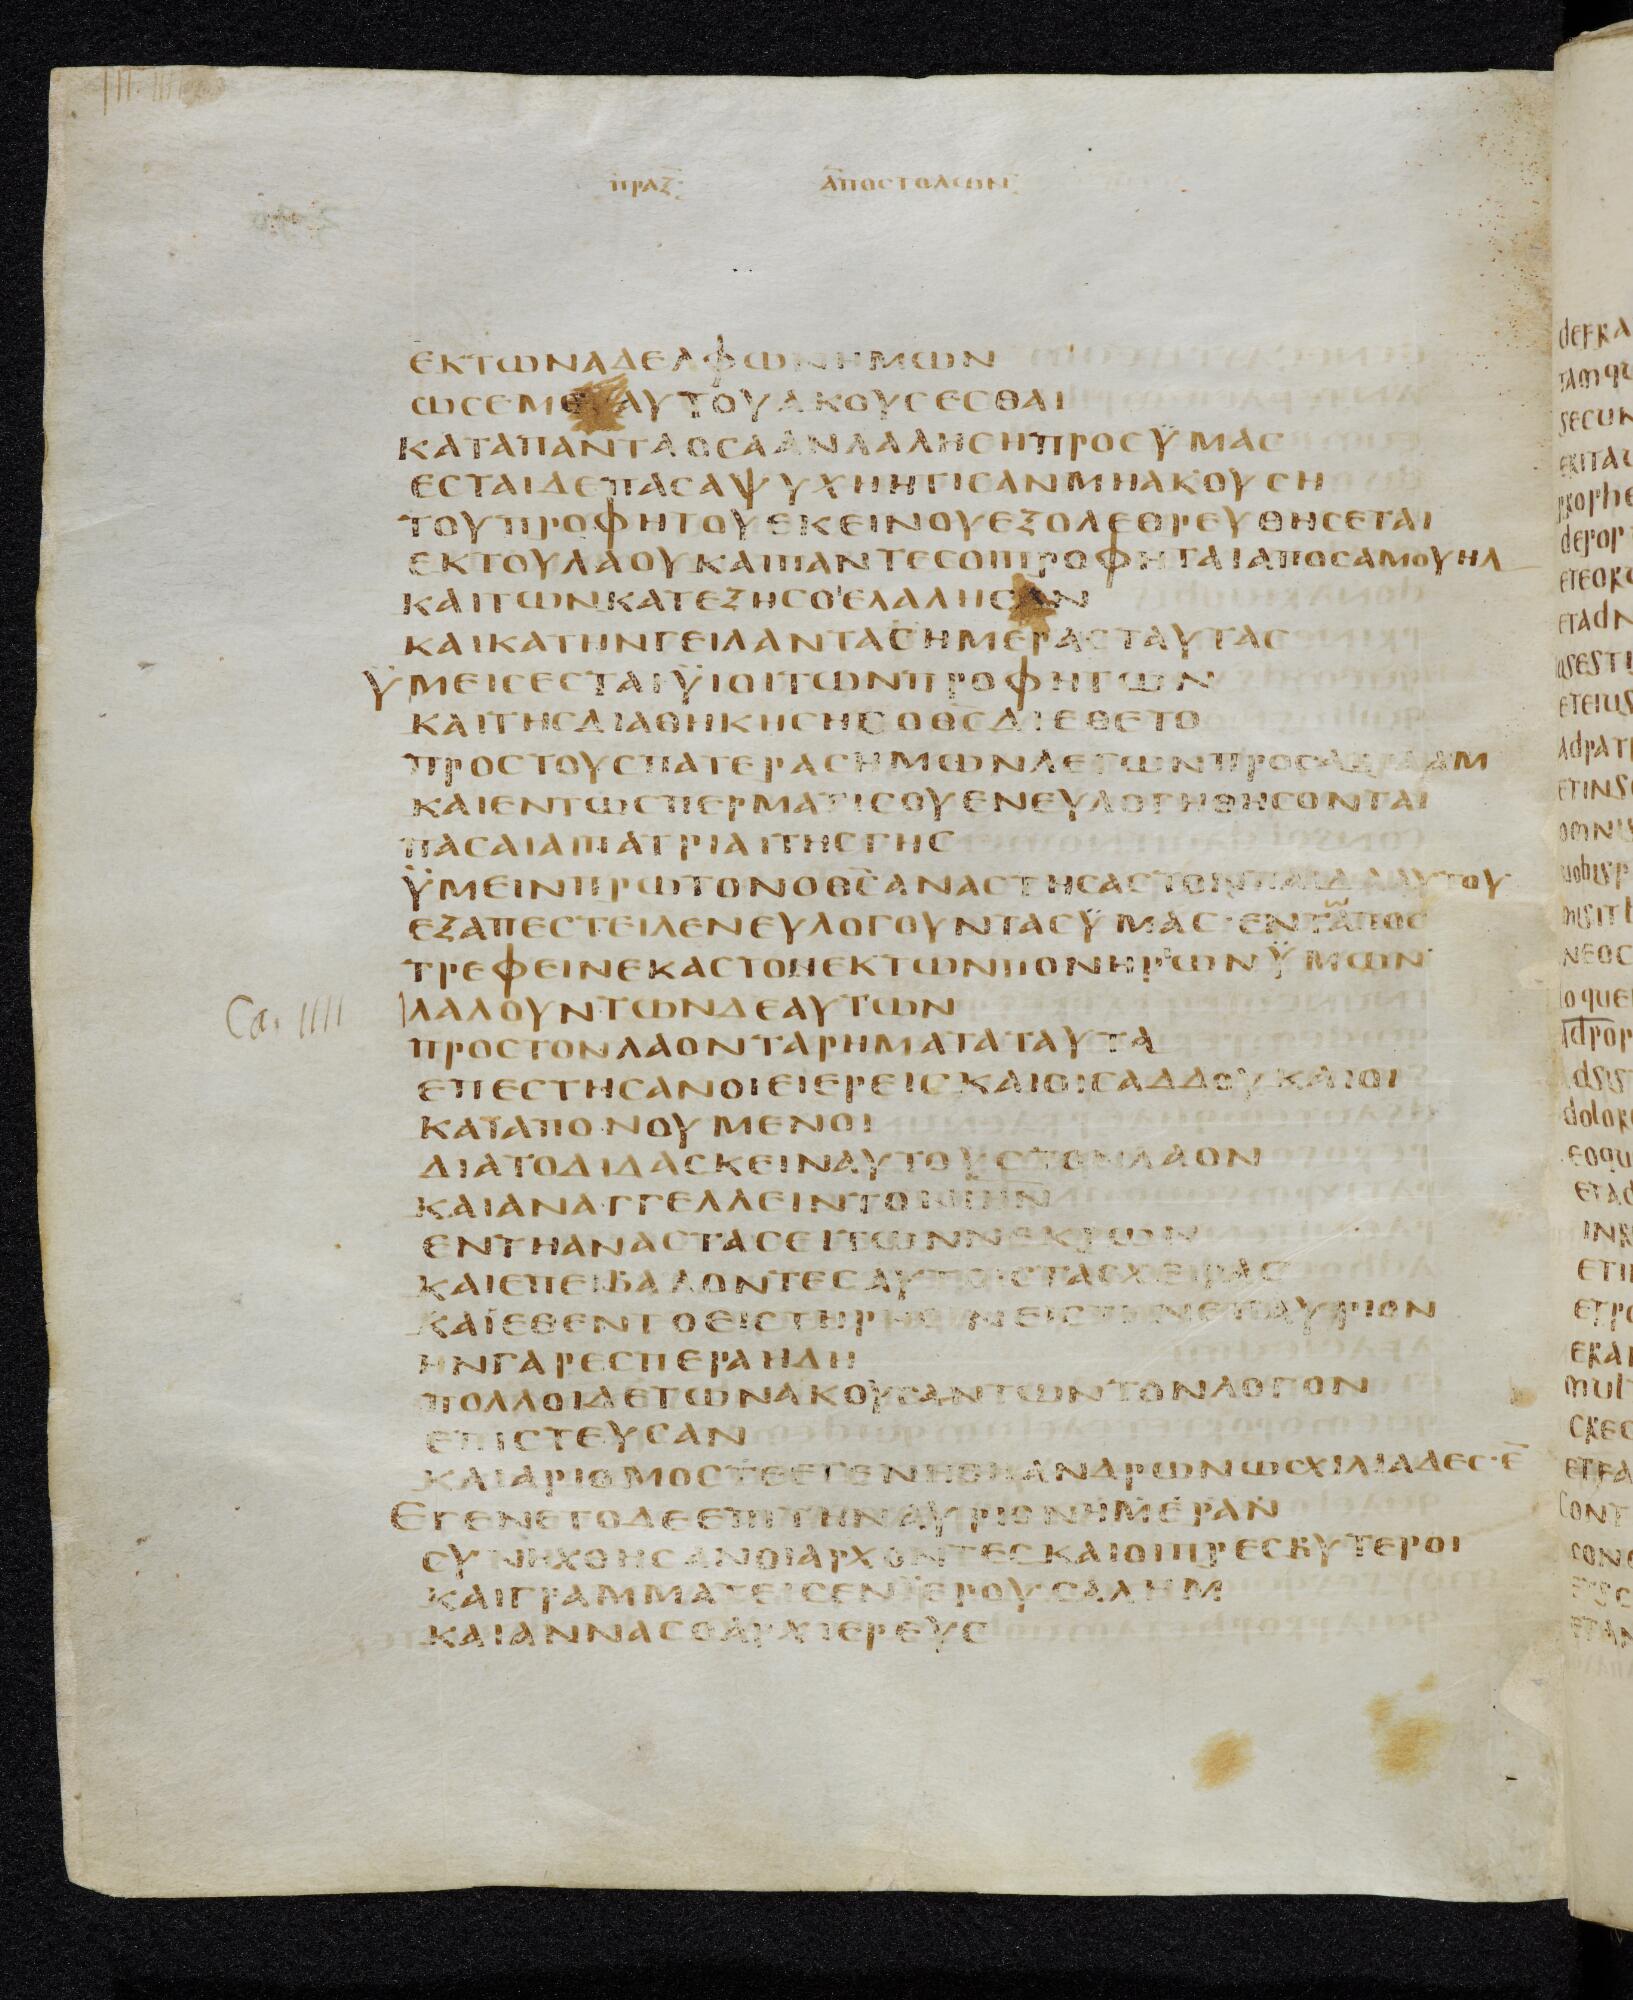 ΠΡΑΞ ΑΠΟϹΤΟΛΩΝ
ΕΚΤΩΝΑΔΕΛΦΩΝΗΜΩΝ
ΩϹΕΜΕ ΑΥΤΟΥΑΚΟΥϹΕϹΘΑΙ
ΚΑΤΑΠΑΝΤΑΟϹΑΑΝΛΑΛΗϹΗΠΡΟϹΫΜΑϹ
ΕϹΤΑΙΔΕΠΑϹΑΨΥΧΗΗΤΙϹΑΝΜΗΑΚΟΥϹΗ
ΤΟΥΠΡΟΦΗΤΟΥΕΚΕΙΝΟΥΕΞΟΛΕΘΡΕΥΘΗϹΕΤΑΙ
ΕΚΤΟΥΛΑΟΥΚΑΙΠΑΝΤΕϹΟΙΠΡΟΦΗΤΑΙΑΠΟϹΑΜΟΥΗΛ
ΚΑΙΤΩΝΚΑΤΕΞΗϹΟΕΛΑΛΗϹΑΝ
ΚΑΙΚΑΤΗΝΓΕΙΛΑΝΤΑϹΗΜΕΡΑϹΤΑΥΤΑϹ
ΫΜΕΙϹΕϹΤΑΙΫΙΟΙΤΩΝΠΡΟΦΗΤΩΝ
ΚΑΙΤΗϹΔΙΑΘΗΚΗϹΗϹΟΘϹΔΙΕΘΕΤΟ
ΠΡΟϹΤΟΥϹΠΑΤΕΡΑϹΗΜΩΝΛΕΓΩΝΠΡΟϹΑΒΡΑΑΜ
ΚΑΙΕΝΤΩϹΠΕΡΜΑΤΙϹΟΥΕΝΕΥΛΟΓΗΘΗϹΟΝΤΑΙ
ΠΑϹΑΙΑΙΠΑΤΡΙΑΙΤΗϹΓΗϹ
ΫΜΕΙΝΠΡΩΤΟΝΟΘϹΑΝΑϹΤΗϹΑϹΤΟΝΠΑΙΔΑΑΥΤΟΥ
ΕΞΑΠΕϹΤΕΙΛΕΝΕΥΛΟΓΟΥΝΤΑϹΫΜΑϹ·ΕΝΤΩΑΠΟϹ
ΤΡΕΦΕΙΝΕΚΑϹΤΟΗΕΚΤΩΝΠΟΝΗΡΩΝΫΜΩΝ
Ca. IIII ΛΑΛΟΥΝΤΩΝΔΕΑΥΤΩΝ
ΠΡΟϹΤΟΝΛΑΟΝΤΑΡΗΜΑΤΑΤΑΥΤΑ
ΕΠΕϹΤΗϹΑΝΟΙΕΙΕΡΕΙϹΚΑΙΟΙϹΑΔΔΟΥΚΑΙΟΙ
ΚΑΤΑΠΟΝΟΥΜΕΝΟΙ
ΔΙΑΤΟΔΙΔΑϹΚΕΙΝΑΥΤΟΥϹΤΟΝΛΑΟΝ
ΚΑΙΑΝΑΓΓΕΛΛΕΙΝΤΟΝΙΗΝ
ΕΝΤΗΑΝΑϹΤΑϹΕΙΤΩΝΝΕΚΡΩΝ
ΚΑΙΕΠΕΙΒΑΛΟΝΤΕϹΑΥΤΟΙϹΤΑϹΧΕΙΡΑϹ
ΚΑΙΕΘΕΝΤΟΕΙϹΤΗΡΗϹΙΝΕΙϹΤΗΝΕΠΑΥΡΙΟΝ
ΗΝΓΑΡΕϹΠΕΡΑΗΔΗ
ΠΟΛΛΟΙΔΕΤΩΝΑΚΟΥϹΑΝΤΩΝΤΟΝΛΟΓΟΝ
ΕΠΙϹΤΕΥϹΑΝ
ΚΑΙΑΡΙΘΜΟϹΤΕΕΓΕΝΗΘΗΑΝΔΡΩΝΩϹΧΙΛΙΑΔΕϹ·Ε
ΕΓΕΝΕΤΟΔΕΕΠΙΤΗΝΑΥΡΙΟΝΗΜΕΡΑΝ
ϹΥΝΗΧΘΗϹΑΝΟΙΑΡΧΟΝΤΕϹΚΑΙΟΙΠΡΕϹΒΥΤΕΡΟΙ
ΚΑΙΓΡΑΜΜΑΤΕΙϹΕΝΪΕΡΟΥϹΑΛΗΜ
ΚΑΙΑΝΝΑϹΟΑΡΧΙΕΡΕΥϹ